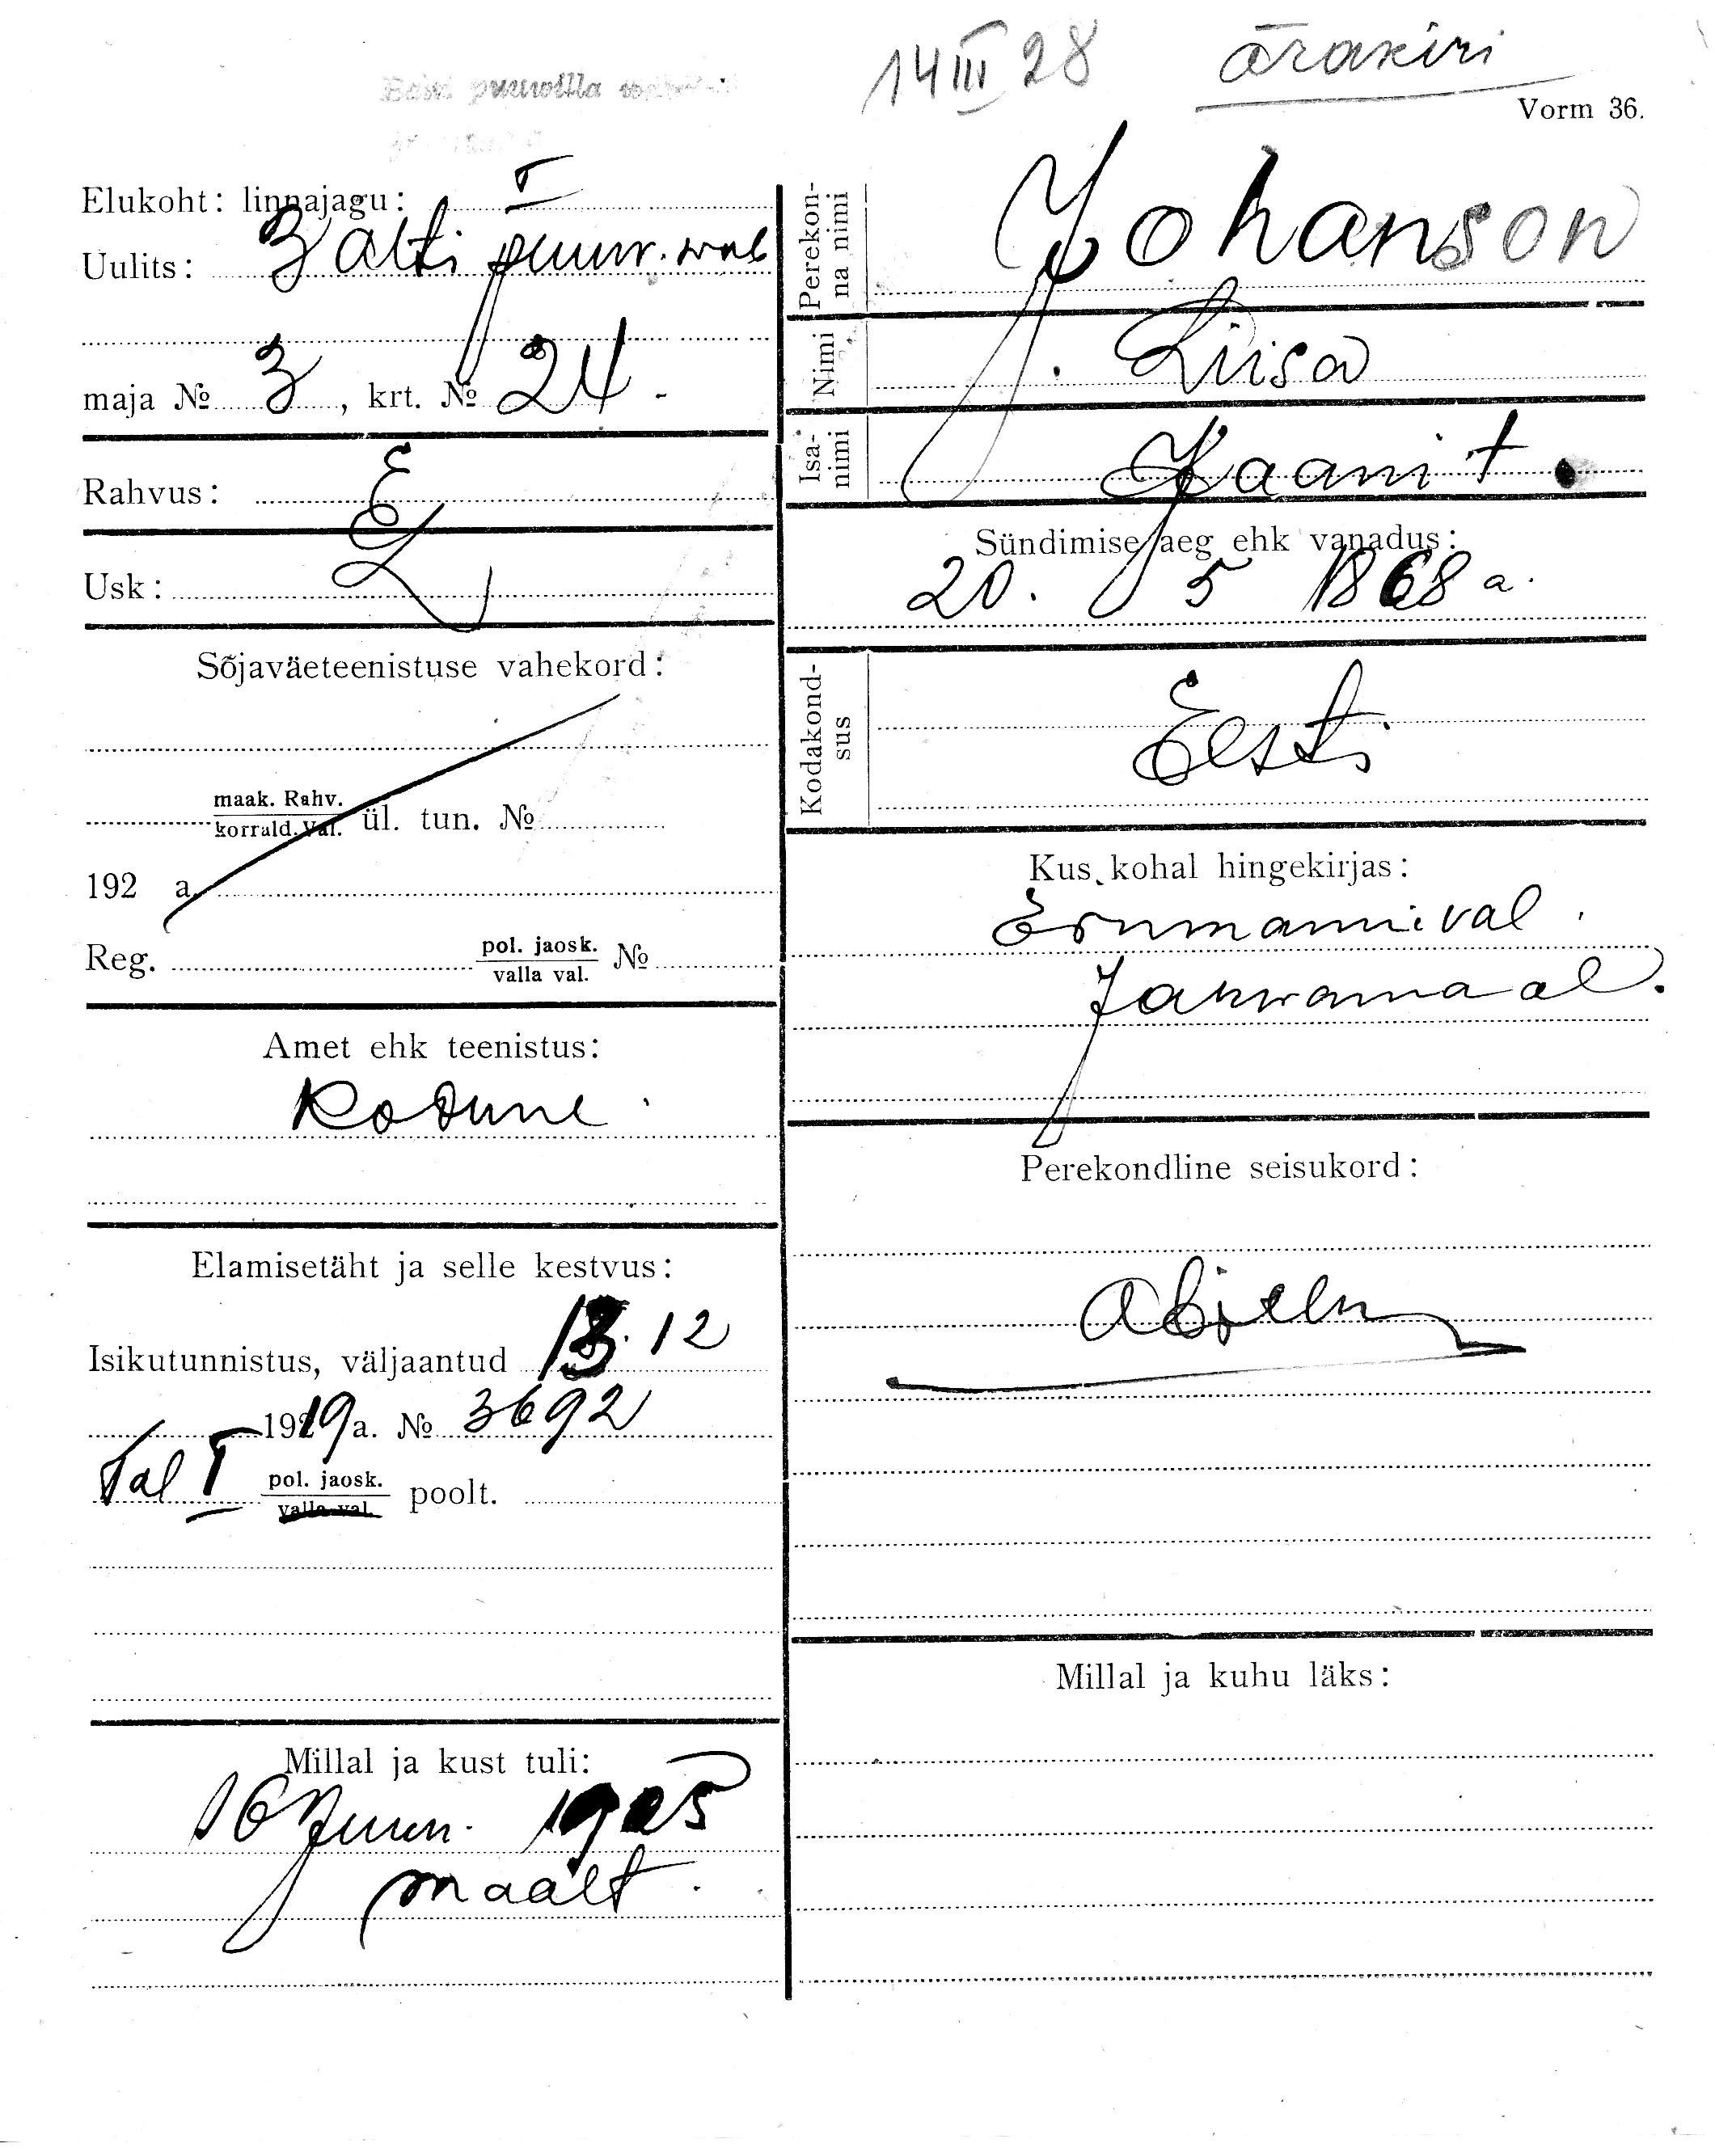 14 III 28 ärakiri
Eesti puuwilla
Vorm 36.
Elukoht: linnajagu: I
Uulits: Balti puuv. wab
maja № 3, krt. № 24.
Rahvus: E
Usk: L
Sõjaväeteenistuse vahekord:
maak. Rahv.
korrald. Val. ül. tun. №
192 a.
Reg. pol. jaosk. №
valla val.
Amet ehk teenistus:
Kodune.
Elamisetäht ja selle kestvus:
Isikutunnistus, väljaantud 13. 12
1919 a. № 3692
Tal I pol. jaosk. poolt.
valla val.
Millal ja kust tuli:
16 Juun. 1925
maalt.
Perekonna nimi
Johanson
Nimi
Liisa
Isanimi
Jaani t.
Sündimise aeg ehk vanadus:
20. 5 1868 a.
Kodakondsus
Eesti
Kus kohal hingekirjas:
val.
Jarwamaal.
Perekondline seisukord:
abielu
Millal ja kuhu läks: